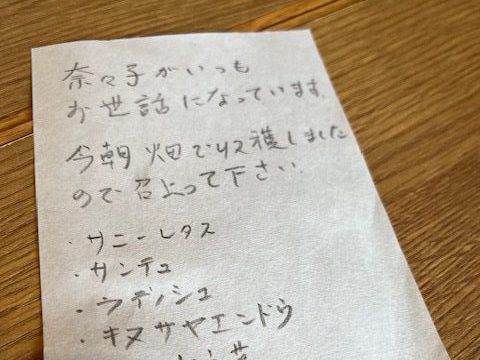 奈々子がいつも
お世話になっています。
今朝 畑で収穫しました
ので召上って下さい
・サニーレタス
・サンチュ
・ラディッシュ
・キヌサヤエンドウ